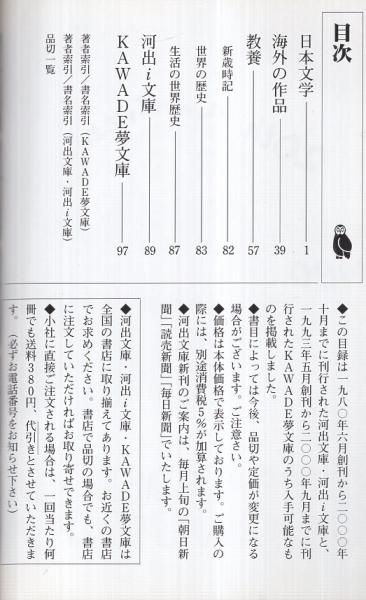 目次
日本文学 1
海外の作品 39
教養 57
新歳時記 82
世界の歴史 83
生活の世界歴史 87
河出・i文庫 89
KAWADE夢文庫 97
著者索引／書名索引（KAWADE夢文庫）
著者索引／書名索引（河出文庫・河出i文庫）
品切一覧
◆この目録は一九八〇年六月創刊から二〇〇〇年
十月までに刊行された河出文庫・河出i文庫と、
一九九三年五月創刊から二〇〇〇年九月までに刊
行されたKAWADE夢文庫のうち入手可能なも
のを掲載しました。
◆書目によっては今後、品切や定価が変更になる
場合がございます。ご注意さい。
◆価格は本体価格で表示しております。ご購入の
際には、別途消費税5％が加算されます。
◆河出文庫新刊のご案内は、毎月上旬の「朝日新
聞」「読売新聞」「毎日新聞」でいたします。
◆河出文庫・河出i文庫・KAWADE夢文庫は
全国の書店に取り揃えてあります。お近くの書店
でお求めください。書店で品切の場合でも、書店
に注文していただければお取り寄せできます。
◆小社に直接ご注文される場合は、一回当たり何
冊でも送料380円、代引きとさせていただきま
す。（必ずお電話番号をお知らせ下さい）